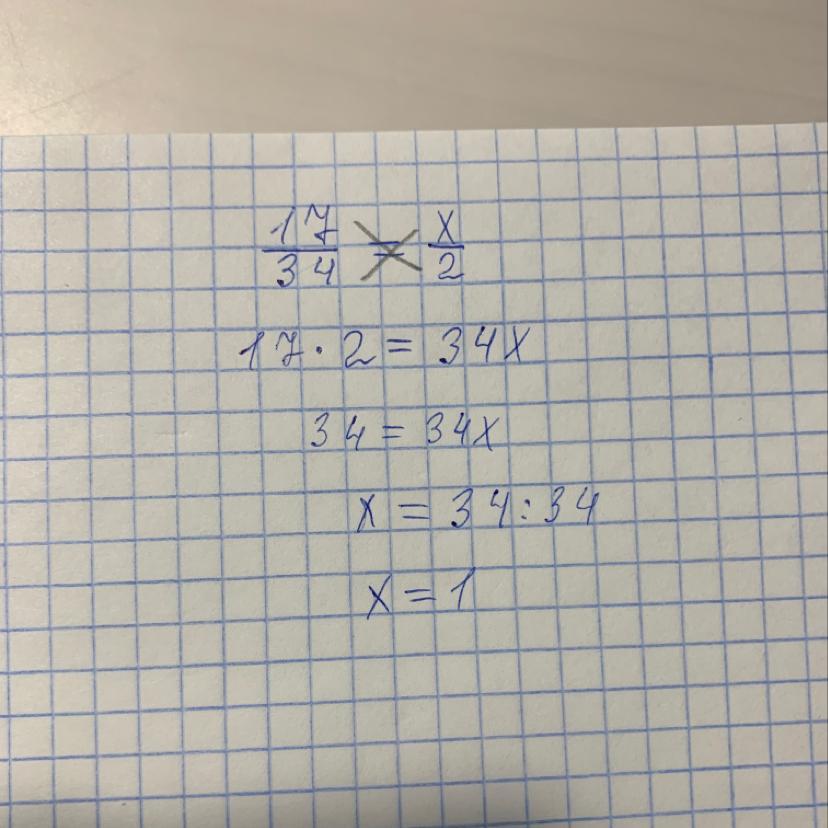 17/34 = x/2
17 · 2 = 34x
34 = 34x
x = 34 : 34
x = 1